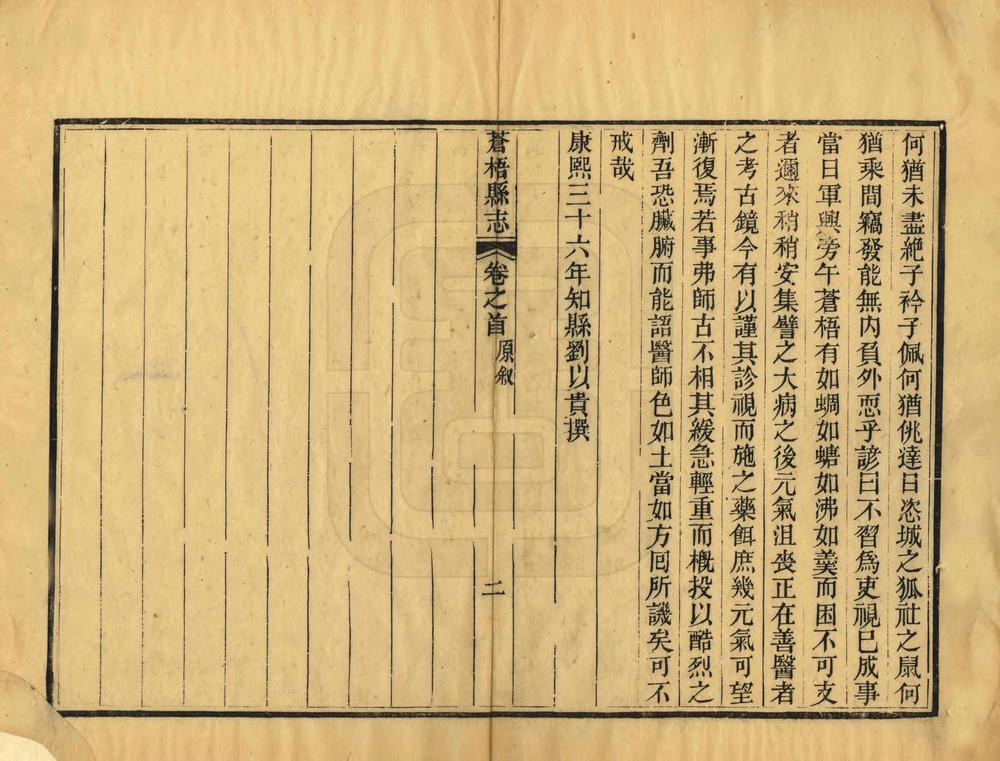 何猶未盡絶子衿子佩何猶佻達日恣城之狐社之鼠何
猶乘間竊發能無内負外恧乎諺曰不習爲吏視已成事
當日軍興旁午蒼梧有如蜩如螗如沸如羮而困不可支
者邇來稍稍安集譬之大病之後元氣沮喪正在善醫者
之考古鏡今有以謹其診視而施之藥餌庶幾元氣可望
漸復焉若事弗師古不相其緩急輕重而槪投以酷烈之
劑吾恐臟腑而能語醫師色如土當如方囘所譏矣可不
戒哉
康熙三十六年知縣劉以貴撰
蒼梧縣志 卷之首 原叙 二